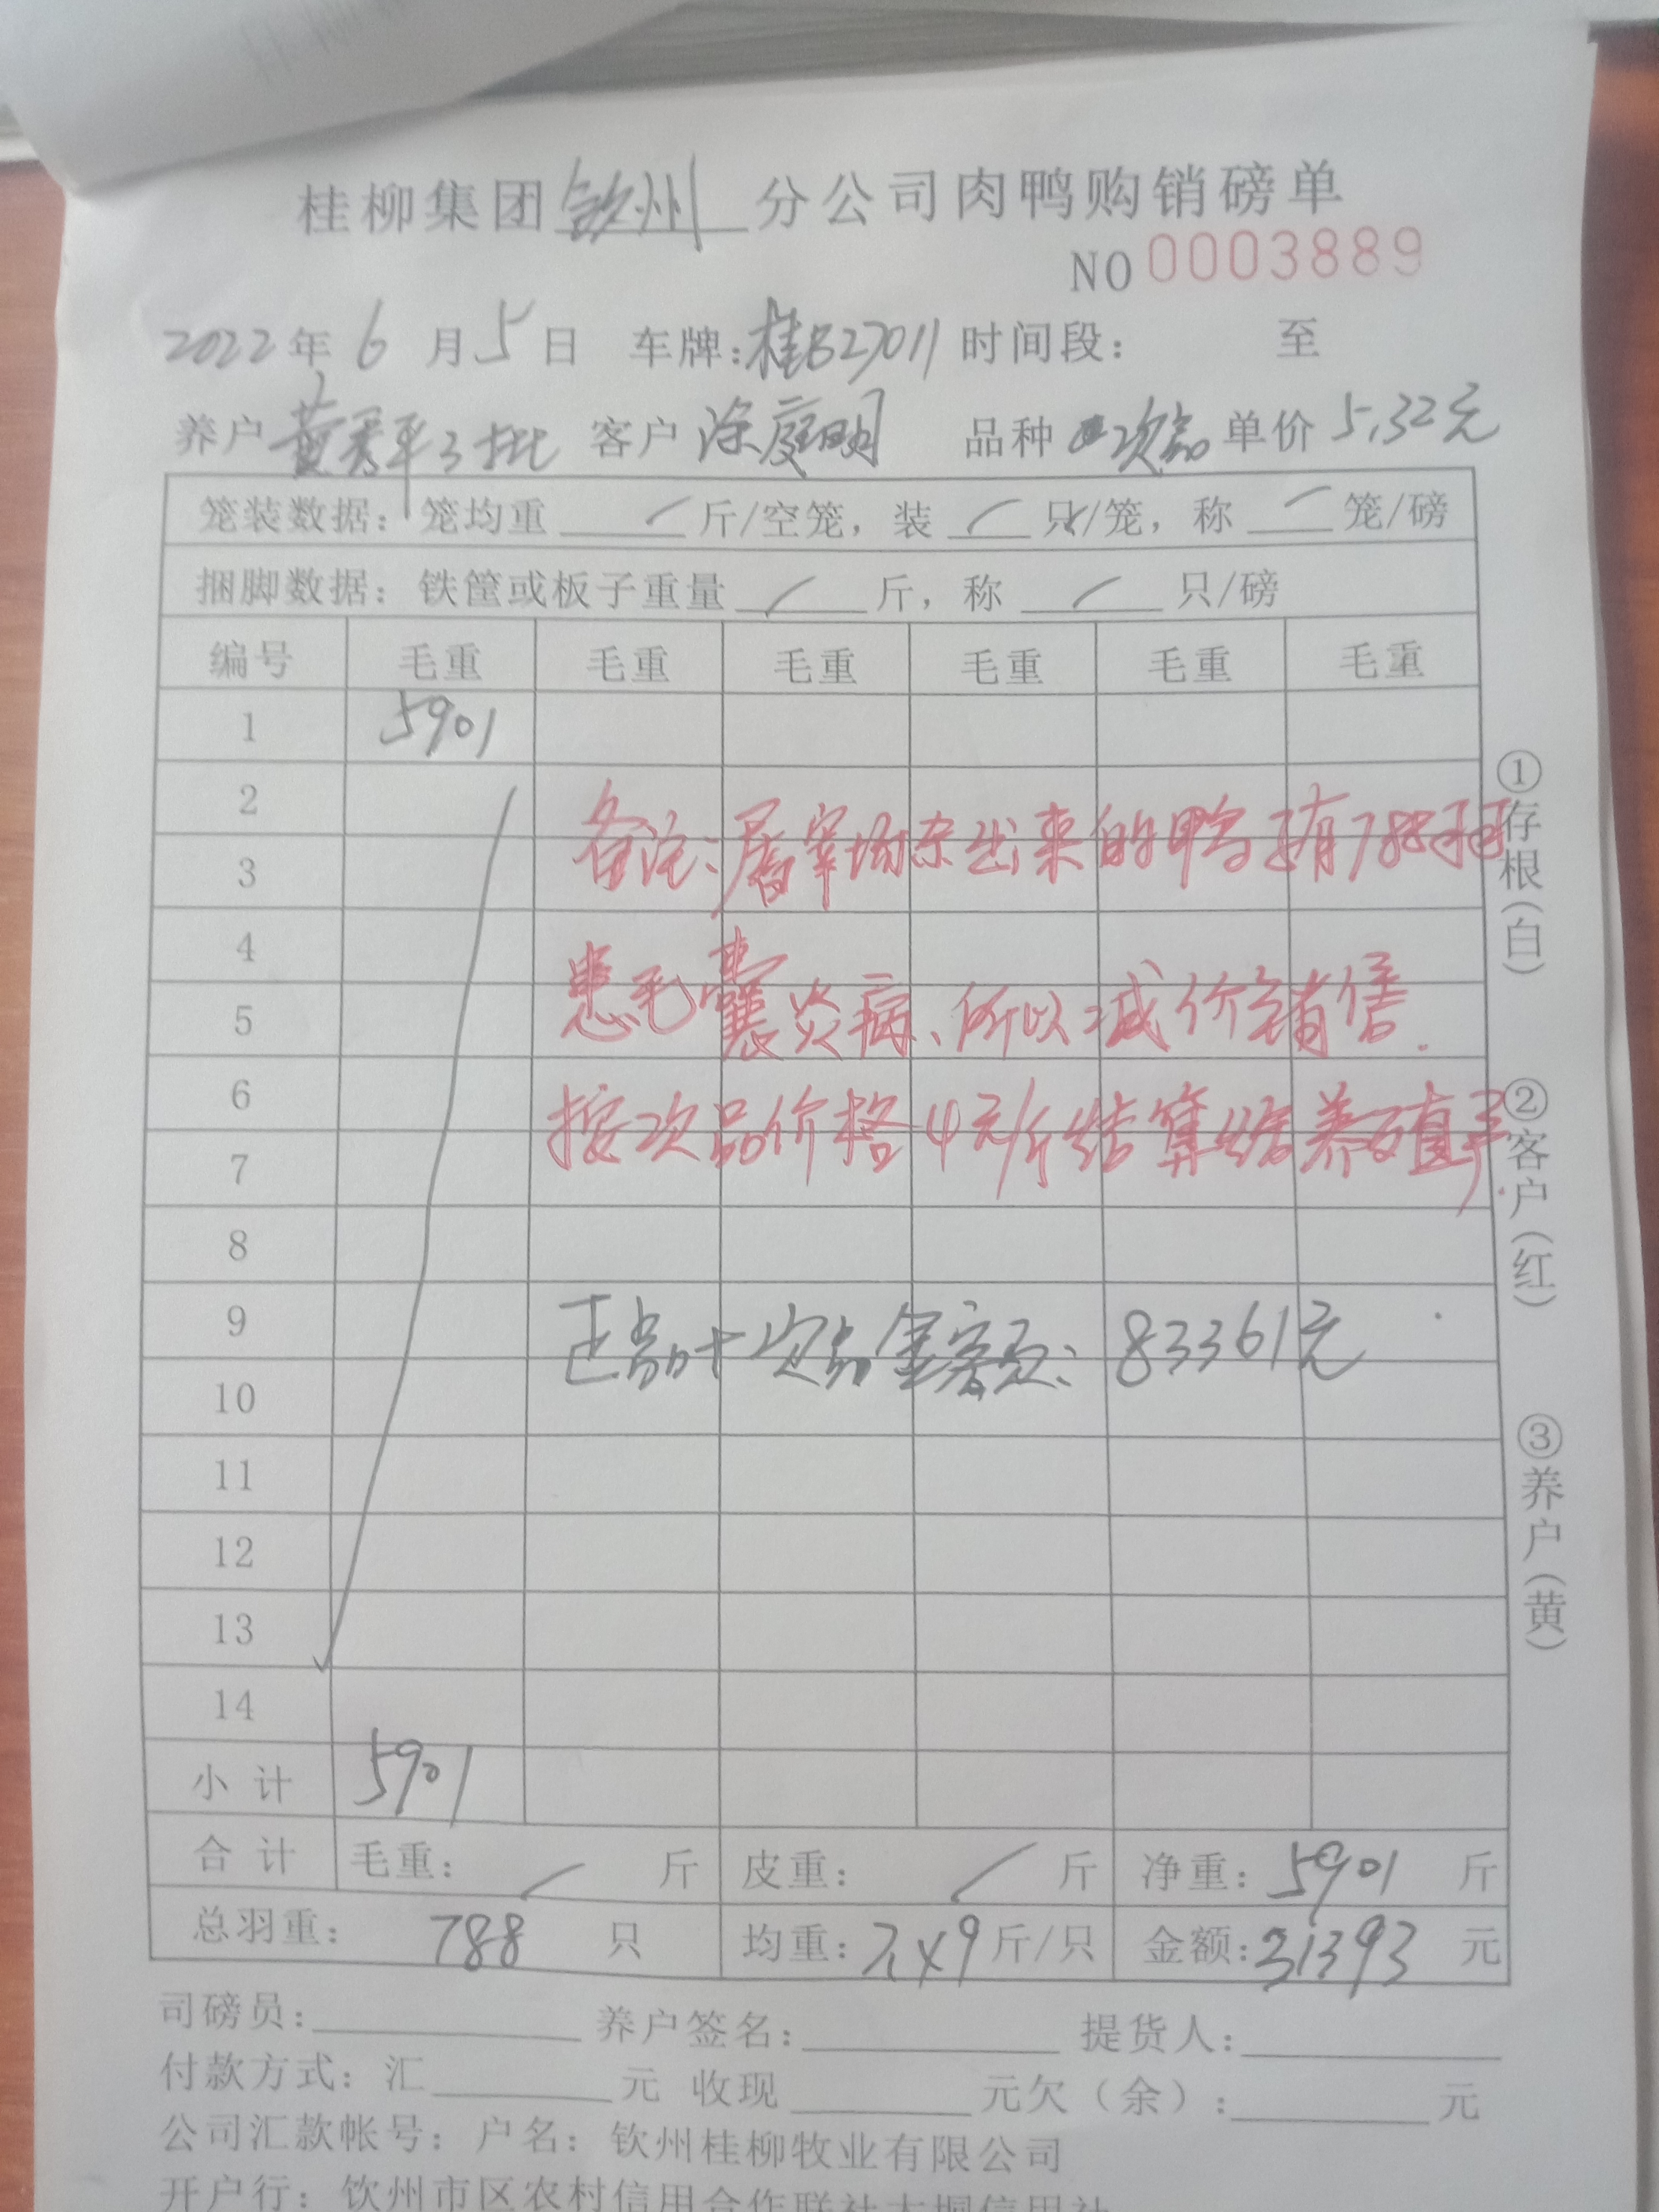 桂柳集团钦州分公司肉鸭购销磅单
NO 0003889
2022年6月5日 车牌:桂B27011 时间段: 至
养户黄秀平3批 客户涂庭明 品种次品 单价5.32元
笼装数据: 笼均重/斤/空笼, 装/只/笼, 称/笼/磅
捆脚数据: 铁筐或板子重量/斤, 称/只/磅
编号 毛重 毛重 毛重 毛重 毛重 毛重
1 5901
2
备注:屠宰场杀出来的鸭子有788只
3
4
患毛囊炎病、所以减价销售.
5
6
按次品价格4元/斤结算给养殖户.
7
8
9
正品+次品金额: 83361元
10
11
12
13
14
小计 5901
合计 毛重: / 斤 皮重: / 斤 净重: 5901 斤
总羽重: 788 只 均重: 7.49斤/只 金额:31393 元
司磅员: 养户签名: 提货人:
付款方式: 汇 元 收现 元欠(余): 元
公司汇款帐号: 户名: 钦州桂柳牧业有限公司
开户行: 钦州市区农村信用合作联社大垌信用社
①存根(白)
②客户(红)
③养户(黄)